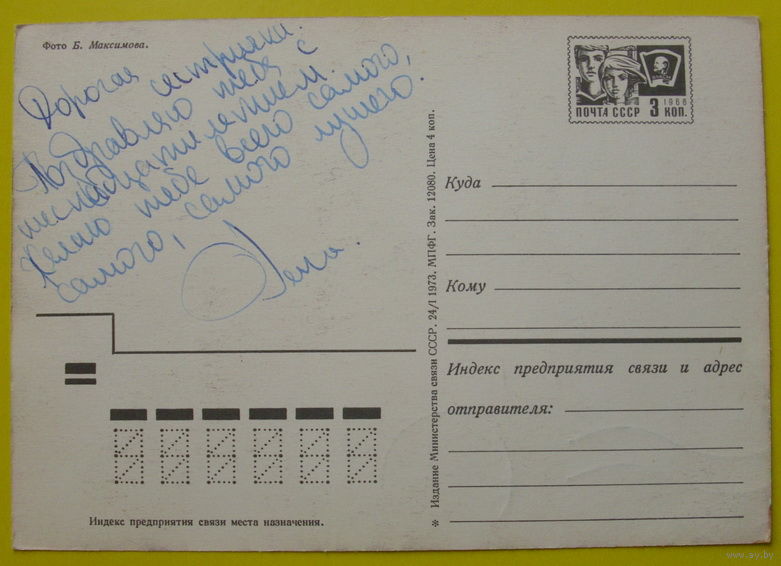 Фото Б. Максимова.
Дорогая сестричка.
Поздравляю тебя с
шестнадцатилетием.
Желаю тебе всего самого,
самого, самого лушего.
Лена.
1966
ПОЧТА СССР 3 КОП.
Куда
Кому
Индекс предприятия связи и адрес
отправителя:
* Издание Министерства связи СССР. 24/I 1973. МПФГ. Зак. 12080. Цена 4 коп.
Индекс предприятия связи места назначения.
www.ay.by